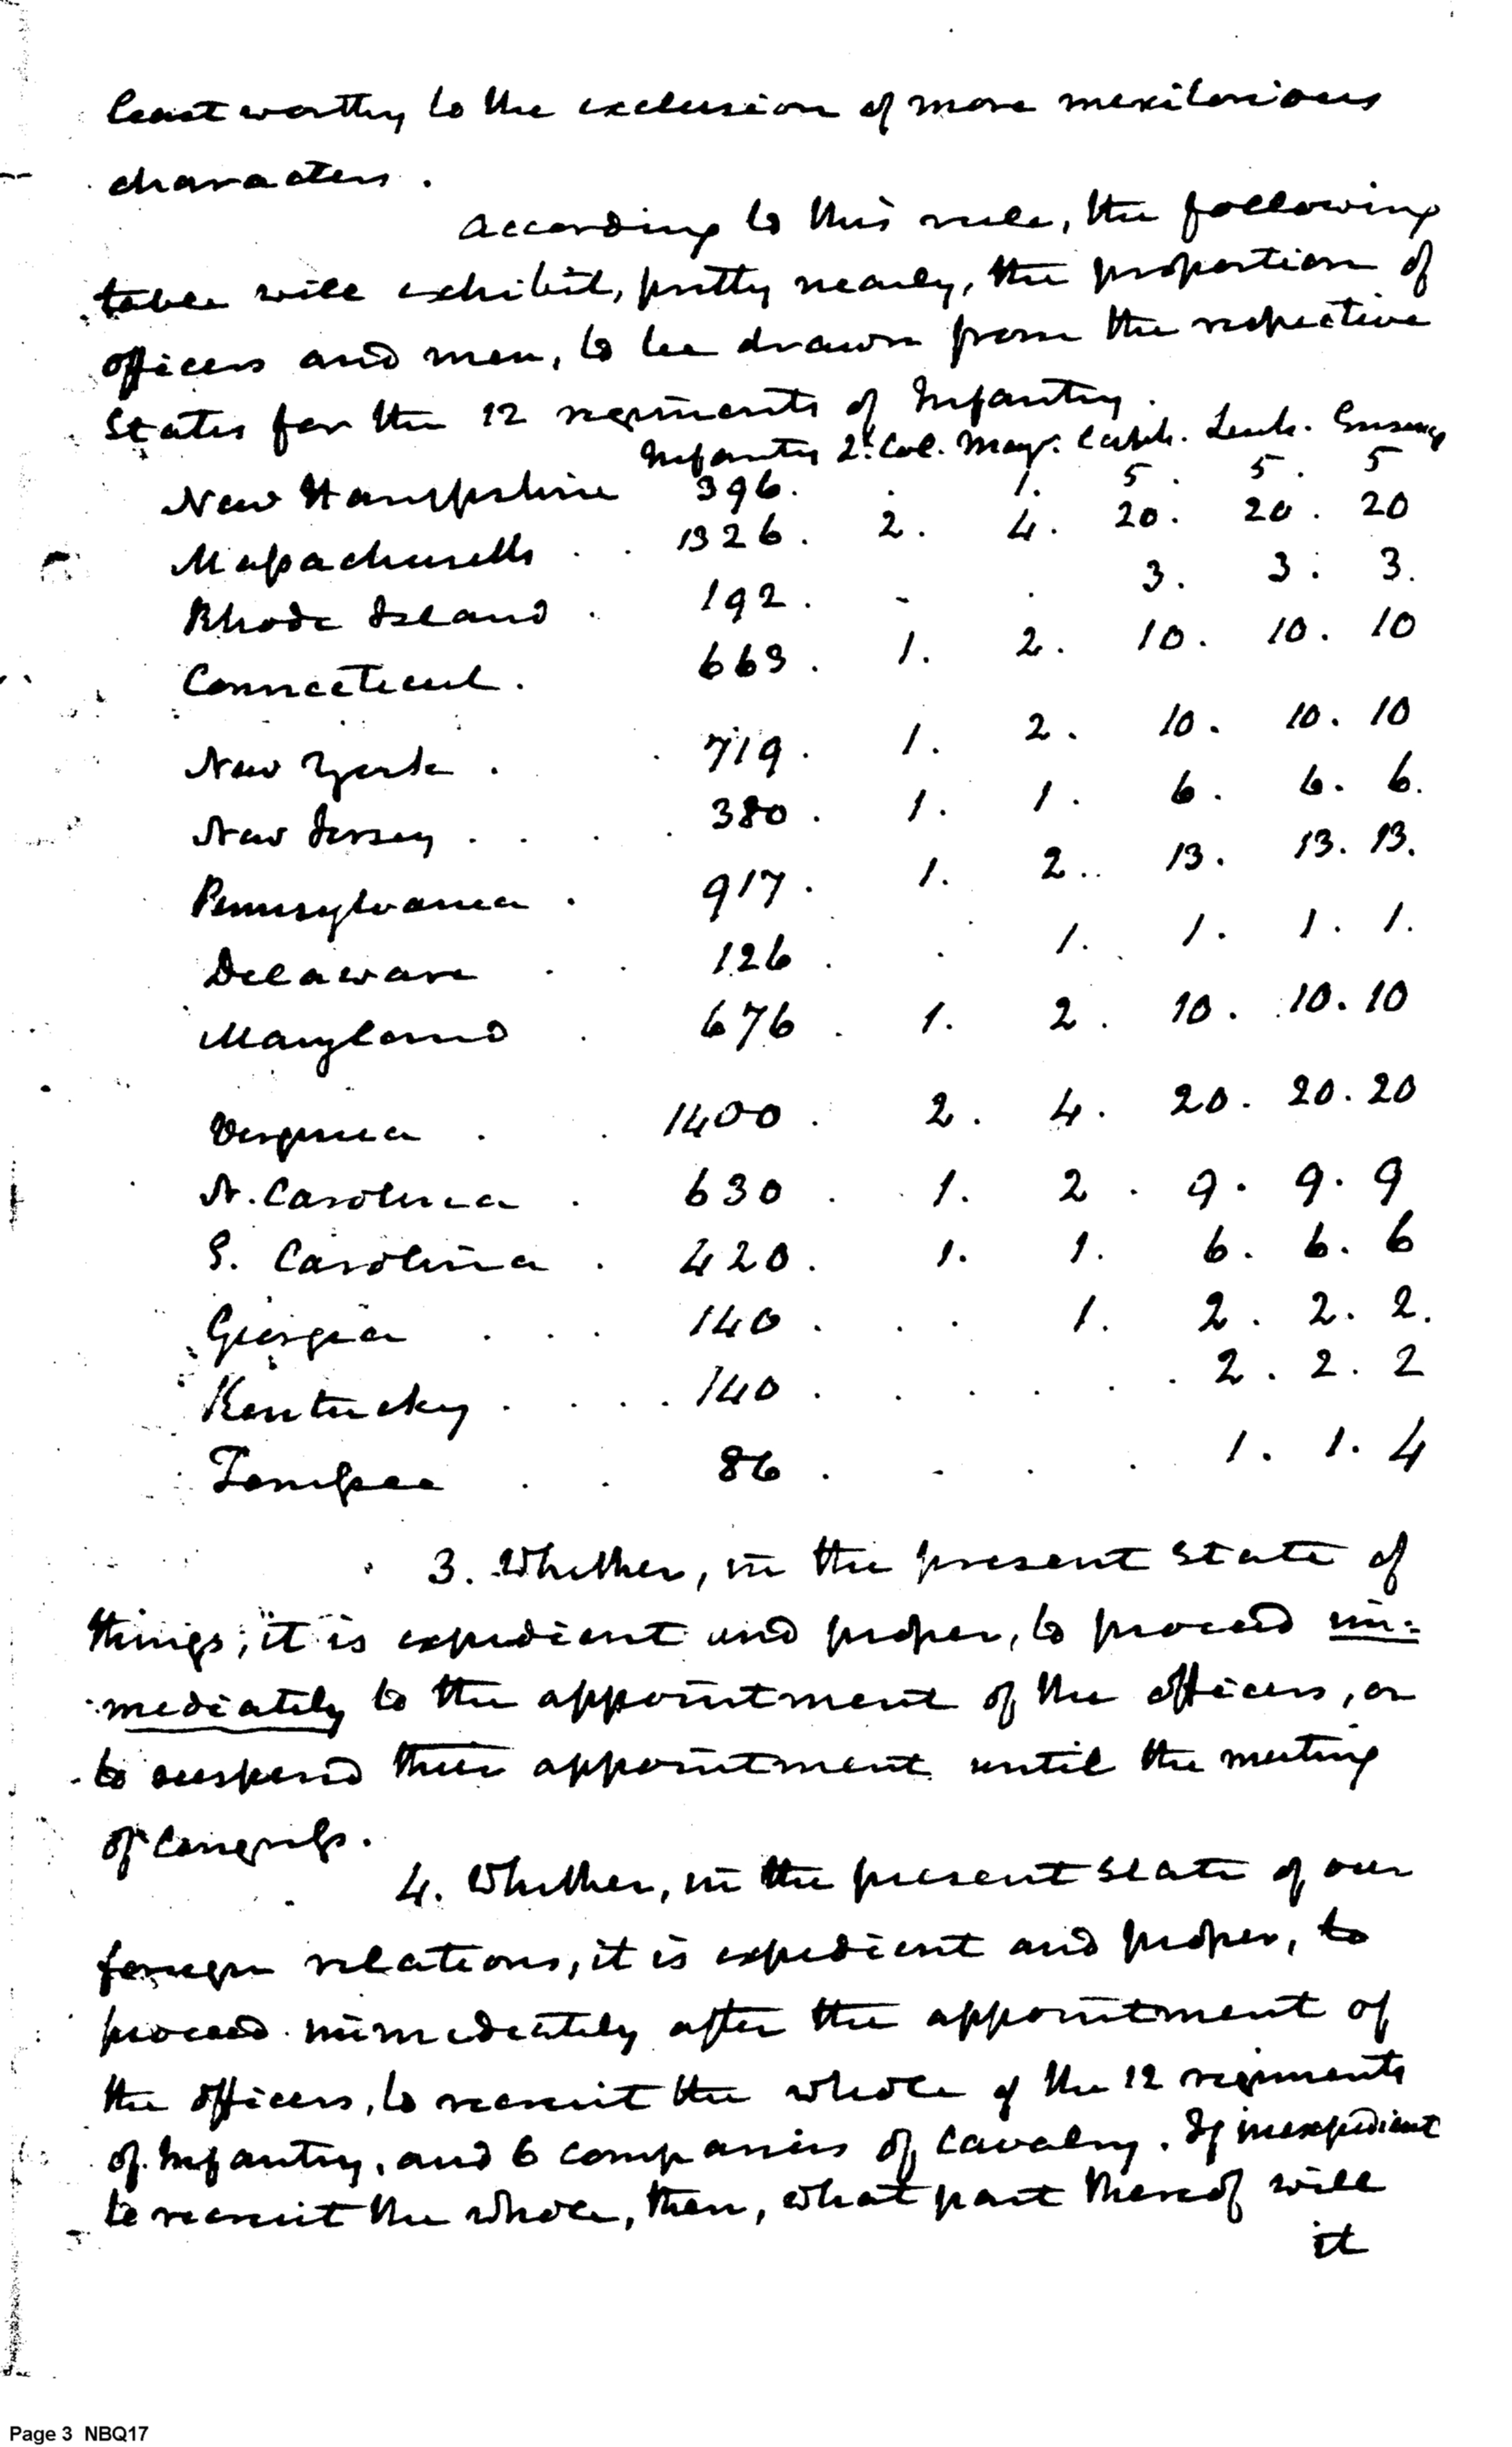 least worthy to the exclusion of more meritorious
characters.
According to this rule, the following
table will exhibit, pretty nearly, the proportion of
officers and men, to be drawn from the respective
States for the 12 regiments of Infantry.
Infantry Lt. Col. Majr. Capts. Lieuts. Ensigns
New Hampshire 396. . 1. 5. 5. 5
Massachusetts . . 1326. 2. 4. 20. 20. 20
Rhode Island . 192. - . 3. 3. 3.
Connecticut. 663. 1. 2. 10. 10. 10
New York . . 719. 1. 2. 10. 10. 10
New Jersey . . . . 380. 1. 1. 6. 6. 6.
Pennsylvania . 917. 1. 2.. 13. 13. 13.
Delaware . . 126 . . 1. 1. 1. 1.
Maryland . 676 . 1. 2. 10. 10. 10
Virginia . . 1400. 2. 4. 20. 20. 20
N. Carolina . 630 . . 1. 2. 9. 9. 9
S. Carolina . 420. 1. 1. 6. 6. 6
Georgia . . . 140 . . . 1. 2. 2. 2.
Kentucky . . . . 140 . . . . . . 2. 2. 2
Tennessee . . 86 . - . . 1. 1. 4
3. Whether, in the present state of
things, it is expedient and proper, to proceed im=
mediately to the appointment of the officers, or
to suspend their appointment until the meeting
of Congress.
4. Whether, in the present state of our
foreign relations, it is expedient and proper, to
proceed immediately after the appointment of
the officers, to recruit the whole of the 12 regiments
of Infantry, and 6 companies of Cavalry. If inexpedient
to recruit the whole, then, what part thereof will
it
Page 3 NBQ17